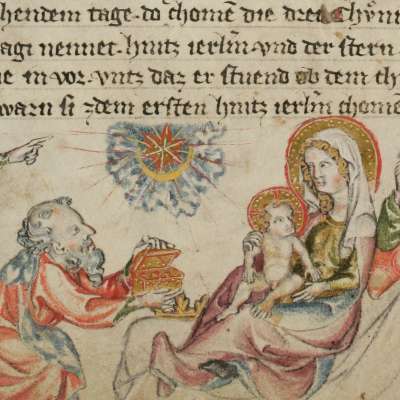 hendem tage. do chomen die drei chůn
agi nennet. hintz ierlm̄. vnd der stern
e in vor. vntz daz er stuend ob dem ch
warn si zdem ersten hintz ierlm̄ chome